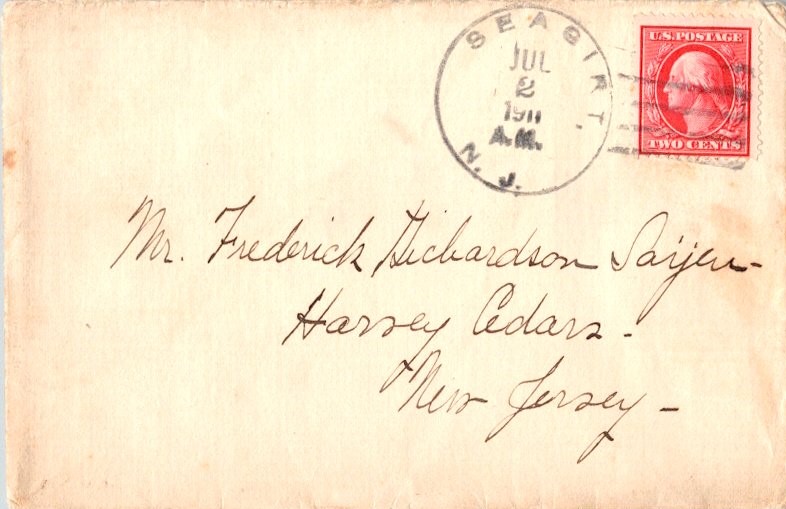 SEA GIRT,
N. J.
JUL
2
1911
A.M.
U.S. POSTAGE
TWO CENTS
Mr. Frederick Richardson Saÿen-
Harvey Cedars-
New Jersey-